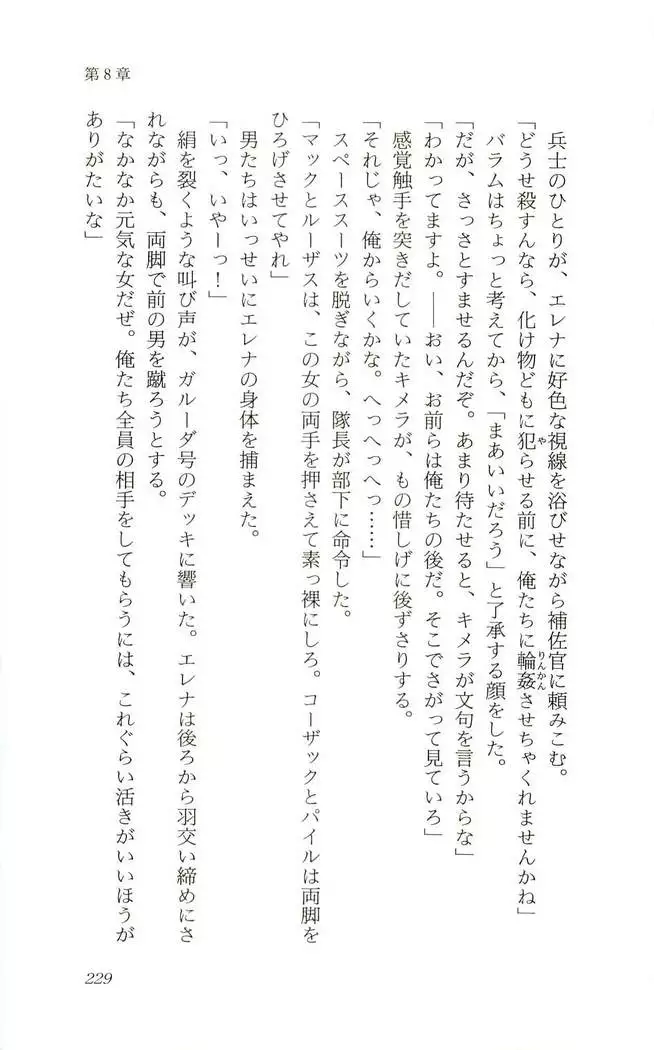 第8章
兵士のひとりが、エレナに好色な視線を浴びせながら補佐官に頼みこむ。
「どうせ殺すんなら、化け物どもに犯らせる前に、俺たちに輪姦させちゃくれませんかね」
や
りんかん
バラムはちょっと考えてから、「まあいいだろう」と了承する顔をした。
「だが、さっさとすませるんだぞ。あまり待たせると、キメラが文句を言うからな」
「わかってますよ。――おい、お前らは俺たちの後だ。そこでさがって見ていろ」
感覚触手を突きだしていたキメラが、もの惜しげに後ずさりする。
「それじゃ、俺からいくかな。へっへっへっ……」
スペーススーツを脱ぎながら、隊長が部下に命令した。
「マックとルーザスは、この女の両手を押さえて素っ裸にしろ。コーザックとパイルは両脚を
ひろげさせてやれ」
男たちはいっせいにエレナの身体を捕まえた。
「いっ、いやーっ！」
絹を裂くような叫び声が、ガルーダ号のデッキに響いた。エレナは後ろから羽交い締めにさ
れながらも、両脚で前の男を蹴ろうとする。
「なかなか元気な女だぜ。俺たち全員の相手をしてもらうには、これぐらい活きがいいほうが
ありがたいな」
229